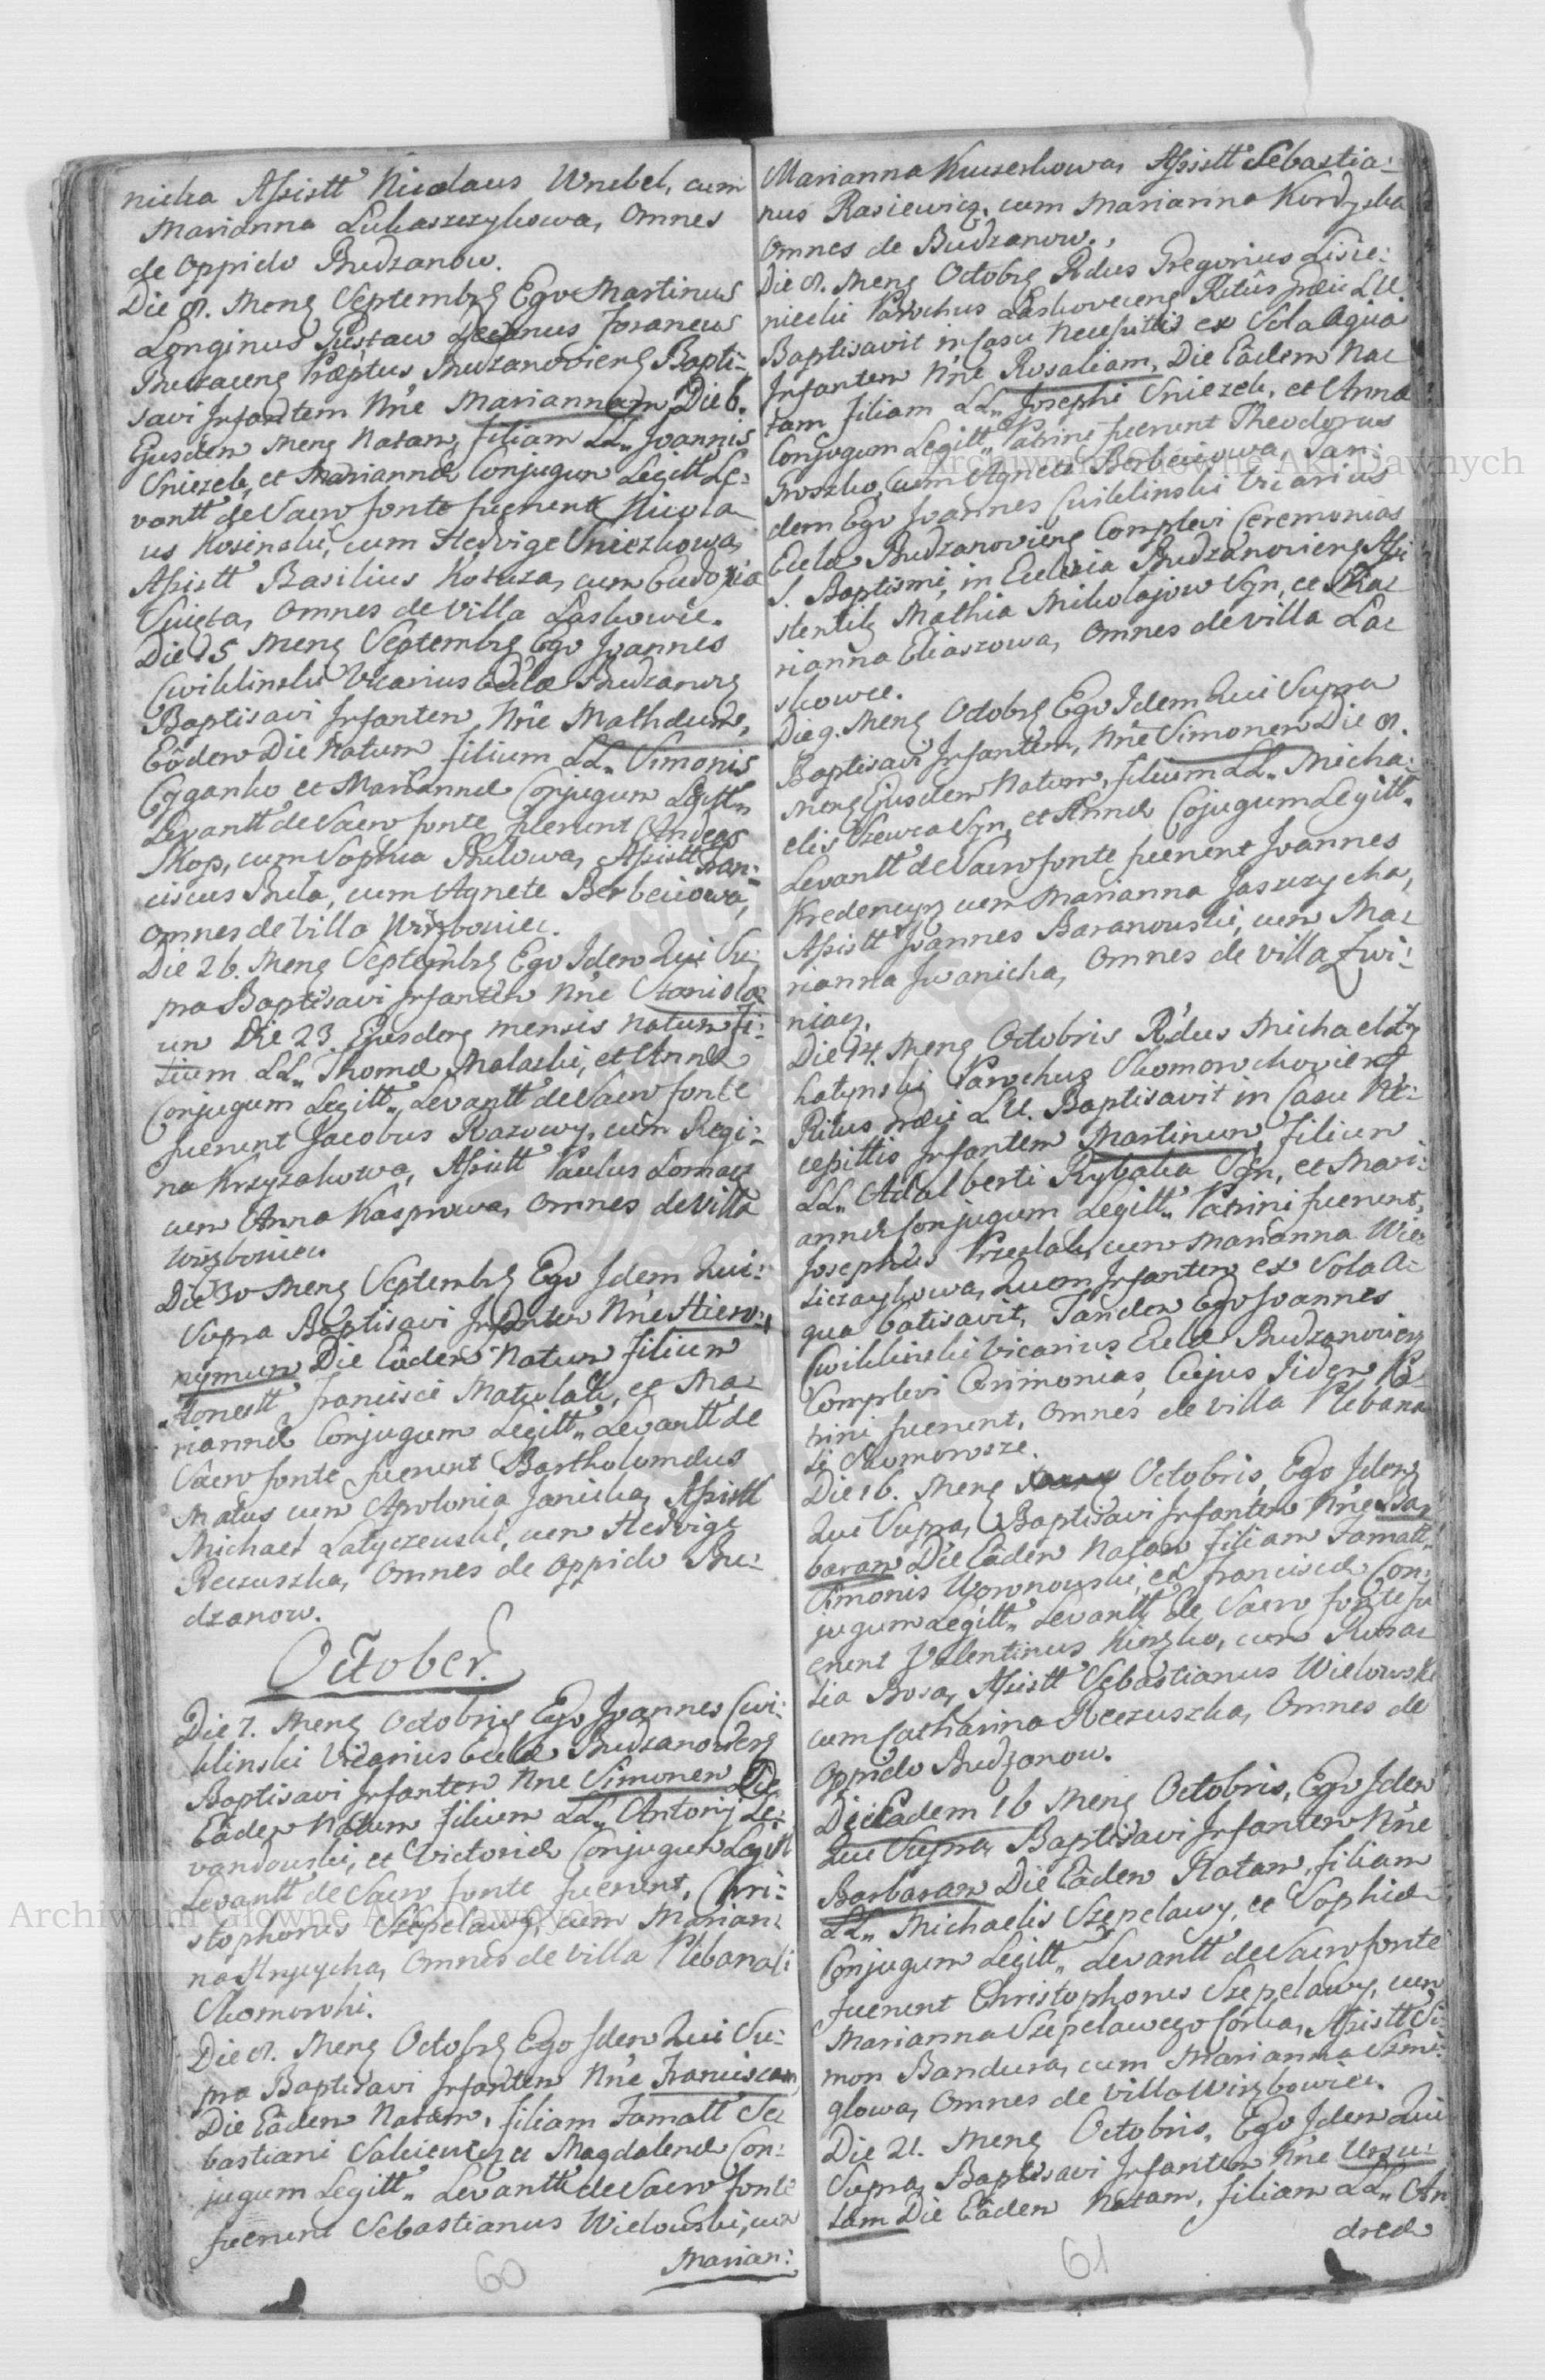 nicka Assistt Nicolaus Wrubel, cum
Marianna Lukaszczykowa, Omnes
de Oppido Budzanow.
Die 8. Mens Septembrs Ego Martinus
Longinus Decanus Foraneus
Præptus Budzanoviens Bapti:
savi Infantem Nn̄e Mariannam Die 6.
Ejusdem Mens Natam, filiam LL. Joannis
Sniezek, et Mariannæ Conjugum Legitt Le:
vantt de Sacro fonte fuerunt Nicola
us Kosinski, cum Hedvige Sniezkowa,
Assistt Basilius Kosuza, cum Eudoxia
Swieta, Omnes de Villa Laskowic.
Die 15 Mens Septembrs Ego Joannes
Cwiklinski Vicarius Ecclæ Budzanovs
Baptisavi Infantem, Nn̄e Mathæum,
Eôdem Die Natum filium LL. Simonis
Cyganko et Mariannæ Conjugum Legitt.
Levantt de Sacro fonte fuerunt Andreas
Skop, cum Sophia Bulowa, Assistt Fran:
ciscus Bula, cum Agnete Berbeciowa,
omnes de Villa Wirzbowiec.
Die 26. Mens Septembrs Ego Idem Qui Su:
pra Baptisavi Infantem Nn̄e Stanisla:
um Die 23. Ejusdem mensis Natum Fi:
lium LL. Thomæ Malaski, et Annæ
Conjugum Legitt. Levantt de Sacro fonte
fuerunt Jacobus Razowy, cum Regi:
na Krzyzakowa, Assistt Paulus Lomaga
cum Anna Kasprowa, Omnes de Villa
Wirzbowiec.
Die 30 Mens Septembrs Ego Idem Qui
Supra Baptisavi Infantem Nn̄e Hiero:
nymum Die Eâdem Natum Filium
Honestt Francisci Matulak, et Ma:
riannæ Conjugum Legitt. Levantt de
Sacro fonte fuerunt Bartholomæus
Matus cum Apolonia Janicka, Assistt
Michael Latyczewski, cum Hedvige
Reczuszka, Omnes de Oppido Bu:
dzanow.
October.
Die 7. Mens Octobris Ego Joannes Cwi:
klinski Vicarius Eccle Budzanoviens
Baptisavi Infantem Nne Simonem Die
Eâdem Natum filium LL. Antonij Le:
vandowski, et Victoriæ Conjugum Legitt
Levantt de Sacro fonte fuerunt, Chri:
stophorus Szepelawy, cum Marian:
na Hrycycha, Omnes de Villa Plebanali
Skomorohi.
Die 8. Mens Octobrs Ego Idem Qui Su:
pra Baptisavi Infantem Nn̄e Franciscam,
Die Eâdem Natam, filiam Famatt Se:
bastiani Salwicz et Magdalenæ Con:
jugum Legitt. Levantt de Sacro fonte
fuerunt Sebastianus Wielowski, cum
Marian:
60
Marianna Kuczerkowa, Assistt Sebastia:
nus Rasiewicz, cum Marianna Kordyska
Omnes de Budzanow.
Die 8. Mens Octobrs Rdus Gregorius Lisie:
niecki Parochus Laskoveciens Ritûs Græci LU.
Baptisavit in Casu Necessittis ex Sola Aqua
Infantem Nn̄e Rosaliam, Die Eâdem Na:
tam filiam LL. Josephi Sniezek, et Annæ
Conjugum Legitt. Patrini fuerunt Theodorus
Groszko, cum Agnete Berbeciowa, Tan:
dem Ego Joannes Cwiklinski Vicarius
Eccle Budzanoviens Complevi Ceremonias
S. Baptismi, in Ecclesia Budzanoviens Assi
stentib Mathia Mikolajow Syn, et Ma:
rianna Eliaszowa, Omnes de Villa La:
skowce.
Die 9. Mens Octobrs Ego Idem Qui Supra
Baptisavi Infantem, Nn̄e Simonem Die 8.
Mens Ejusdem Natum, filium LL. Micha:
elis Szewca Syn, et Annæ Cojugum Legitt.
Levantt de Sacro fonte fuerunt Joannes
Kredencyr, cum Marianna Jaszczycha,
Assistt Joannes Baranowski, cum Ma:
rianna Iwanicha, Omnes de Villa Zwi:
niacz.
Die 14. Mens Octobris R̄dus Michael Zy
hatynski Parochus Skomorohoviens
Ritus Græci LU. Baptisavit in Casu Ne:
cessittis Infantem Martinum Filium
LL. Adalberti Rybaka Syn, et Mari:
annæ Conjugum Legitt. Patrini fuerunt,
Josephus Przeslak, cum Marianna Wie
liczczykowa, Quem Infantem ex Sola A:
qua batisavit, Tandem Ego Joannes
Cwiklinski Vicarius Eccle Budzanoviens
Complevi Cerimonias, Cujus Iidem Pa:
trini fuerunt, Omnes de Villa Plebana
li Skomorosze.
Die 16. Mens Octobris, Ego Idem
Qui Supra, Baptisavi Infantem Nn̄e Bar
baram Die Eâdem Natam Filiam Famatt.
Simonis Woronowski, et Franciscæ Con:
jugum Legitt. Levantt de Sacro fonte fu
erunt Valentinus Kiszko, cum Rosa:
lia Bosa, Assistt Sebastianus Wielowski
cum Catharina Reczuszka, Omnes de
Oppido Budzanow.
Die Eadem 16 Mens Octobris, Ego Idem
Qui Supra, Baptisavi Infantem Nn̄e
Barbaram Die Eâdem Natam, filiam
LL. Michaelis Szepelawy, et Sophiæ
Conjugum Legitt. Levantt de Sacro fonte
fuerunt Christophorus Szepelawy, cum
Marianna Szepelawego Corka, Assistt Si:
mon Bandura, cum Marianna Szmi:
glowa, Omnes de Villa Wirzbowiec.
Die 21. Mens Octobris, Ego Idem Qui
Supra, Baptisavi Infantem Nn̄e Ursu:
lam Die Eâdem Natam, filiam LL. An
dreæ
61
Archiwum Główne Akt Dawnych
Archiwum Główne Akt Dawnych